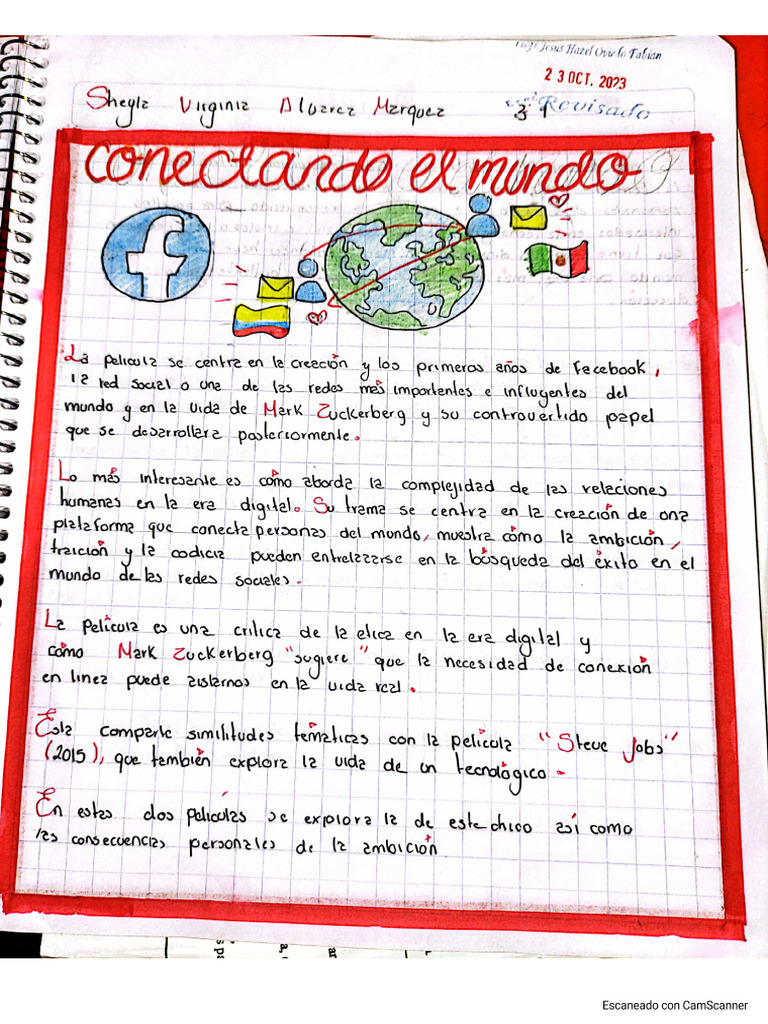 Profr Jesus Hazel Oviedo Fabian
23 OCT. 2023
Revisado
Sheyla Virginia Alvarez Marquez 3° 1
conectando el mundo
f
La pelicula se centra en la creación y los primeros años de Facebook,
la red social o una de las redes más importentes e influyentes del
mundo y en la vida de Mark Zuckerberg y su controvertido papel
que se desarrollara posteriormente.
Lo más interesante es cómo aborda la complejidad de las relaciones
humanas en la era digital. Su trama se centra en la creación de una
plataforma que conecta personas del mundo, muestra cómo la ambición,
traición y la codicia pueden entrelazarse en la búsqueda del éxito en el
mundo de las redes sociales.
La pelicula es una critica de la etica en la era digital y
cómo Mark Zuckerberg "sugiere" que la necesidad de conexión
en linea puede aislarnos en la vida real.
Esta comparte similitudes temáticas con la película "Steve Jobs"
(2015), que también explora la vida de un tecnológico.
En estas dos películas se explora la de este chico así como
las consecuencias personales de la ambición
Escaneado con CamScanner